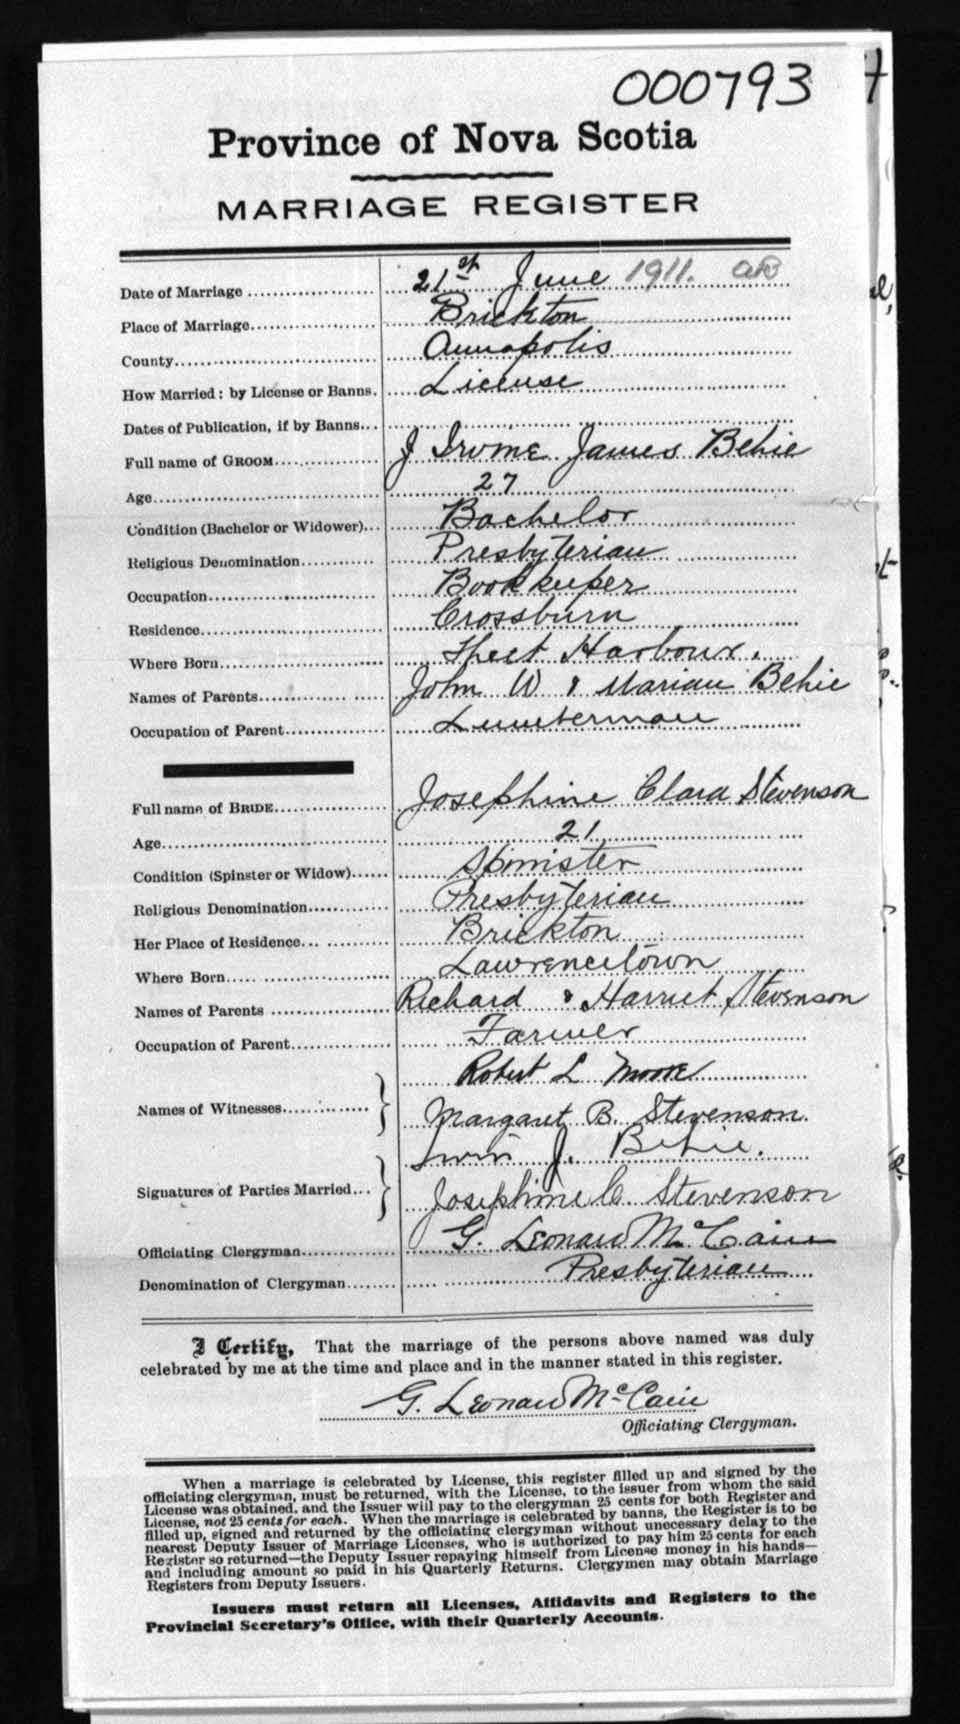 000793
Province of Nova Scotia
MARRIAGE REGISTER
Date of Marriage 21st June 1911.
Place of Marriage Brickton
County Annapolis
How Married: by License or Banns. License
Dates of Publication, if by Banns
Full name of GROOM J Irvine James Behie
Age 27
Condition (Bachelor or Widower) Bachelor
Religious Denomination Presbyterian
Occupation Bookkeeper
Residence Crossburn
Where Born Sheet Harbour.
Names of Parents John W & Marian Behie
Occupation of Parent Lumberman
Full name of BRIDE Josephine Clara Stevenson
Age 21
Condition (Spinster or Widow) Spinister
Religious Denomination Presbyterian
Her Place of Residence Brickton
Where Born Lawrencetown
Names of Parents Richard & Harriet Stevenson
Occupation of Parent Farmer
Names of Witnesses Robert L Moore
Margaret B. Stevenson.
Signatures of Parties Married Irwin J. Behie.
Josephine C Stevenson
Officiating Clergyman G. Leonard McCain
Denomination of Clergyman Presbyterian
I Certify, That the marriage of the persons above named was duly
celebrated by me at the time and place and in the manner stated in this register.
G. Leonard McCain
Officiating Clergyman.
When a marriage is celebrated by License, this register filled up and signed by the
officiating clergyman, must be returned, with the License, to the issuer from whom the said
License was obtained, and the Issuer will pay to the clergyman 25 cents for both Register and
License, not 25 cents for each. When the marriage is celebrated by banns, the Register is to be
filled up, signed and returned by the officiating clergyman without unnecessary delay to the
nearest Deputy Issuer of Marriage Licenses, who is authorized to pay him 25 cents for each
Register so returned—the Deputy Issuer repaying himself from License money in his hands—
and including amount so paid in his Quarterly Returns. Clergymen may obtain Marriage
Registers from Deputy Issuers.
Issuers must return all Licenses, Affidavits and Registers to the
Provincial Secretary's Office, with their Quarterly Accounts.